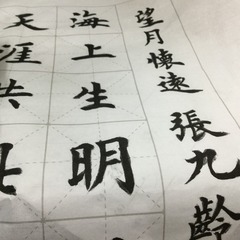 望月懷遠 張九齡
海上生明
天涯共